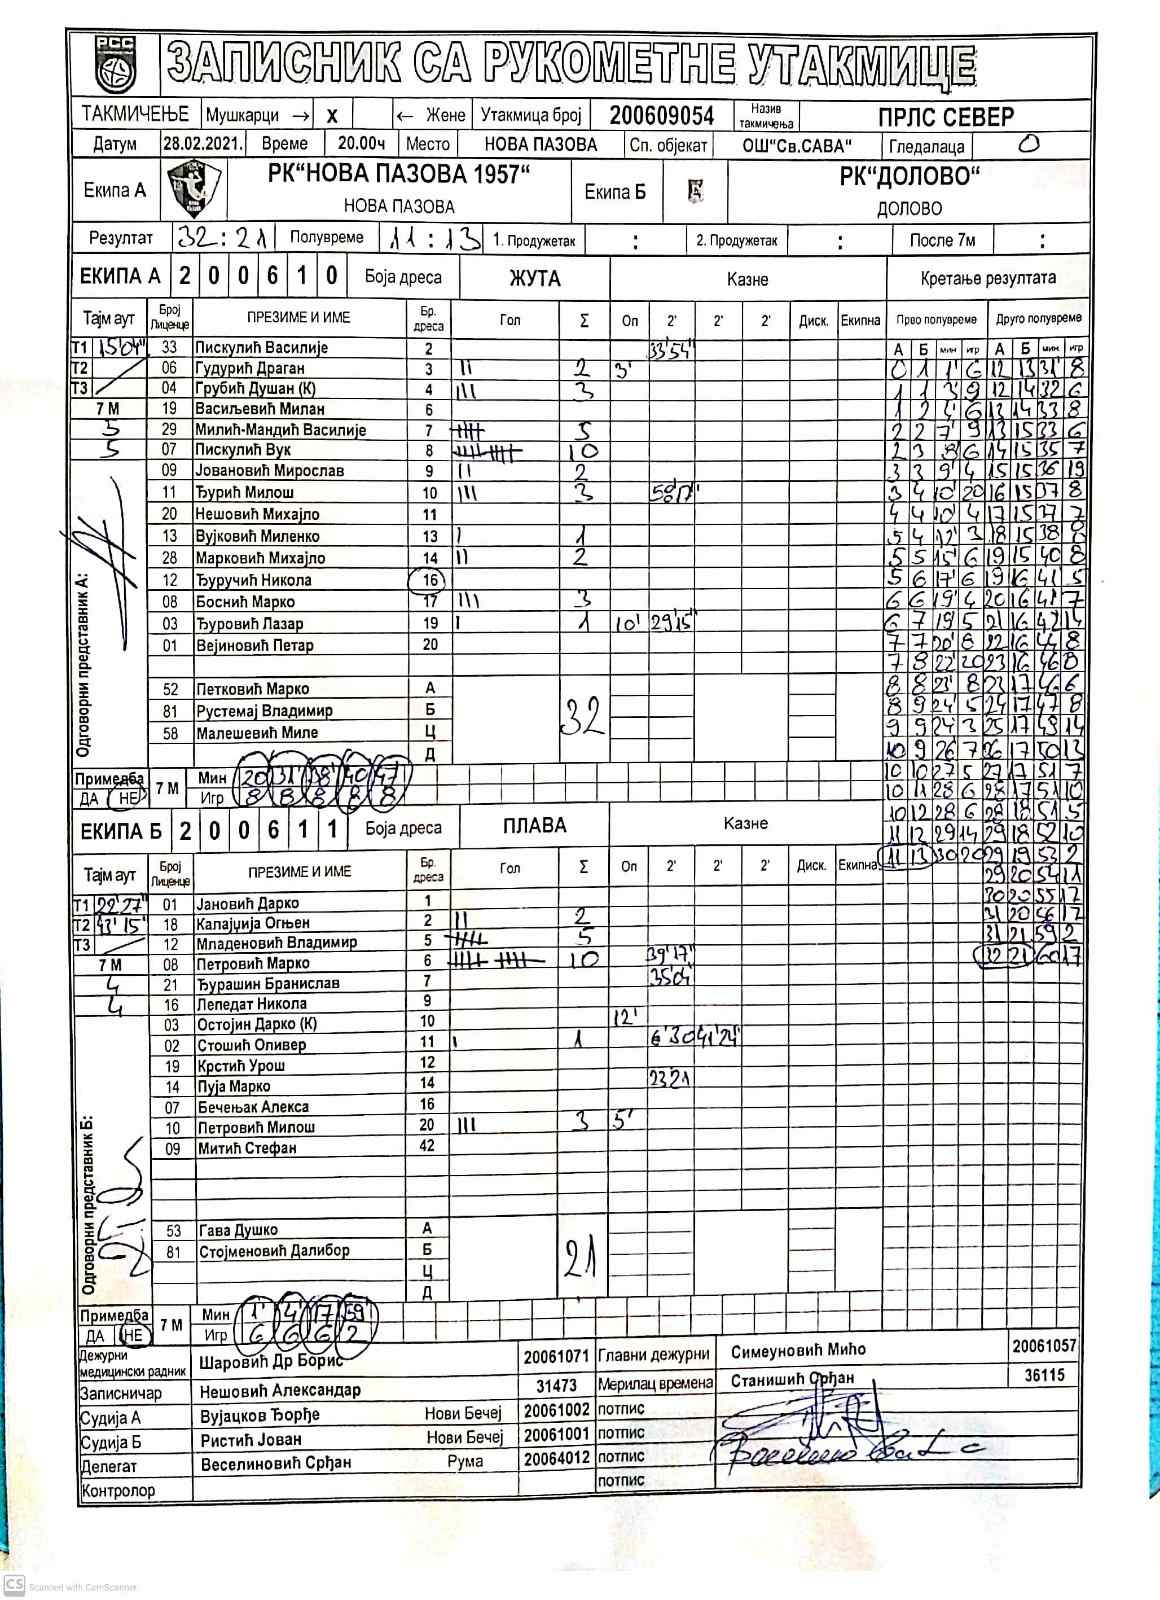 РСС
ЗАПИСНИК СА РУКОМЕТНЕ УТАКМИЦЕ
ТАКМИЧЕЊЕ Мушкарци → X ← Жене Утакмица број 200609054 Назив такмичења ПРЛС СЕВЕР
Датум 28.02.2021. Време 20.00ч Место НОВА ПАЗОВА Сп. објекат ОШ"Св.САВА" Гледалаца 0
Екипа А РК"НОВА ПАЗОВА 1957" НОВА ПАЗОВА Екипа Б РК"ДОЛОВО" ДОЛОВО
Резултат 32:21 Полувреме 11:13 1. Продужетак : 2. Продужетак : После 7м :
ЕКИПА А 2 0 0 6 1 0 Боја дреса ЖУТА Казне Кретање резултата
Тајм аут Број Лиценце ПРЕЗИМЕ И ИМЕ Бр. дреса Гол Σ Оп 2' 2' 2' Диск. Екипна Прво полувреме Друго полувреме
А Б мин игр А Б мин игр
Т1 15'04" 33 Пискулић Василије 2 33'54"
Т2 06 Гудурић Драган 3 II 2 3'
Т3 04 Грубић Душан (К) 4 III 3
7 М 19 Васиљевић Милан 6
5 29 Милић-Мандић Василије 7 5
5 07 Пискулић Вук 8 10
09 Јовановић Мирослав 9 II 2
11 Ђурић Милош 10 III 3 50'17"
20 Нешовић Михајло 11
13 Вујковић Миленко 13 I 1
28 Марковић Михајло 14 II 2
12 Ђуручић Никола 16
08 Боснић Марко 17 III 3
03 Ђуровић Лазар 19 I 1 10' 29'15"
01 Вејиновић Петар 20
52 Петковић Марко А
81 Рустемај Владимир Б 32
58 Малешевић Миле Ц
Д
Одговорни представник А:
Примедба ДА НЕ 7 М Мин 20 31' 38' 40 47'
Игр 8 8 8 8 8
0 1 1' 6 12 13 31' 8
1 1 3 9 12 14 32 6
1 2 4' 6 13 14 33 8
2 2 7' 9 13 15 33 6
2 3 8' 6 14 15 35' 7
3 3 9' 4 15 15 36 19
3 4 10' 20 16 15 37 8
4 4 10' 4 17 15 37 7
5 4 12' 3 18 15 38 8
5 5 15' 6 19 15 40 8
5 6 17' 6 19 16 41 5
6 6 19' 4 20 16 41 7
6 7 19' 5 21 16 42 14
7 7 20' 8 22 16 44 8
7 8 22' 20 23 16 46 8
8 8 23' 8 23 17 46 6
8 9 24' 5 24 17 47 8
9 9 24' 3 25 17 48 14
10 9 26 7 26 17 50 13
10 10 27 5 27 17 51 7
10 11 28 6 28 17 51 10
10 12 28 6 28 18 51 5
11 12 29 14 29 18 52 10
11 13 30 20 29 19 53 2
29 20 54 11
30 20 55 17
31 20 56 17
31 21 59 2
32 21 60 17
ЕКИПА Б 2 0 0 6 1 1 Боја дреса ПЛАВА Казне
Тајм аут Број Лиценце ПРЕЗИМЕ И ИМЕ Бр. дреса Гол Σ Оп 2' 2' 2' Диск. Екипна
Т1 22'27" 01 Јановић Дарко 1
Т2 43'15" 18 Калајџија Огњен 2 II 2
Т3 12 Младеновић Владимир 5 5
7 М 08 Петровић Марко 6 10 39'17"
4 21 Ђурашин Бранислав 7 35'04'
4 16 Лепедат Никола 9
03 Остојин Дарко (К) 10 12'
02 Стошић Оливер 11 I 1 6'30 41'24"
19 Крстић Урош 12
14 Пуја Марко 14 2321
07 Бечењак Алекса 16
10 Петровић Милош 20 III 3 5'
09 Митић Стефан 42
53 Гава Душко А
81 Стојменовић Далибор Б 21
Ц
Д
Одговорни представник Б:
Примедба ДА НЕ 7 М Мин 1' 4' 17 59'
Игр 6 6 6 2
Дежурни медицински радник Шаровић Др Борис 20061071 Главни дежурни Симеуновић Мићо 20061057
Записничар Нешовић Александар 31473 Мерилац времена Станишић Срђан 36115
Судија А Вујацков Ђорђе Нови Бечеј 20061002 потпис
Судија Б Ристић Јован Нови Бечеј 20061001 потпис
Делегат Веселиновић Срђан Рума 20064012 потпис
Контролор потпис
CS Scanned with CamScanner